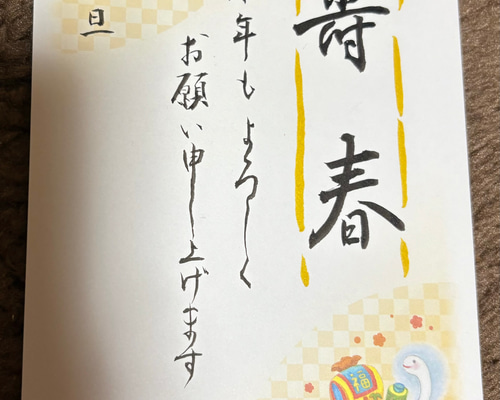 寿春
年もよろしく
お願い申し上げます
旦
福